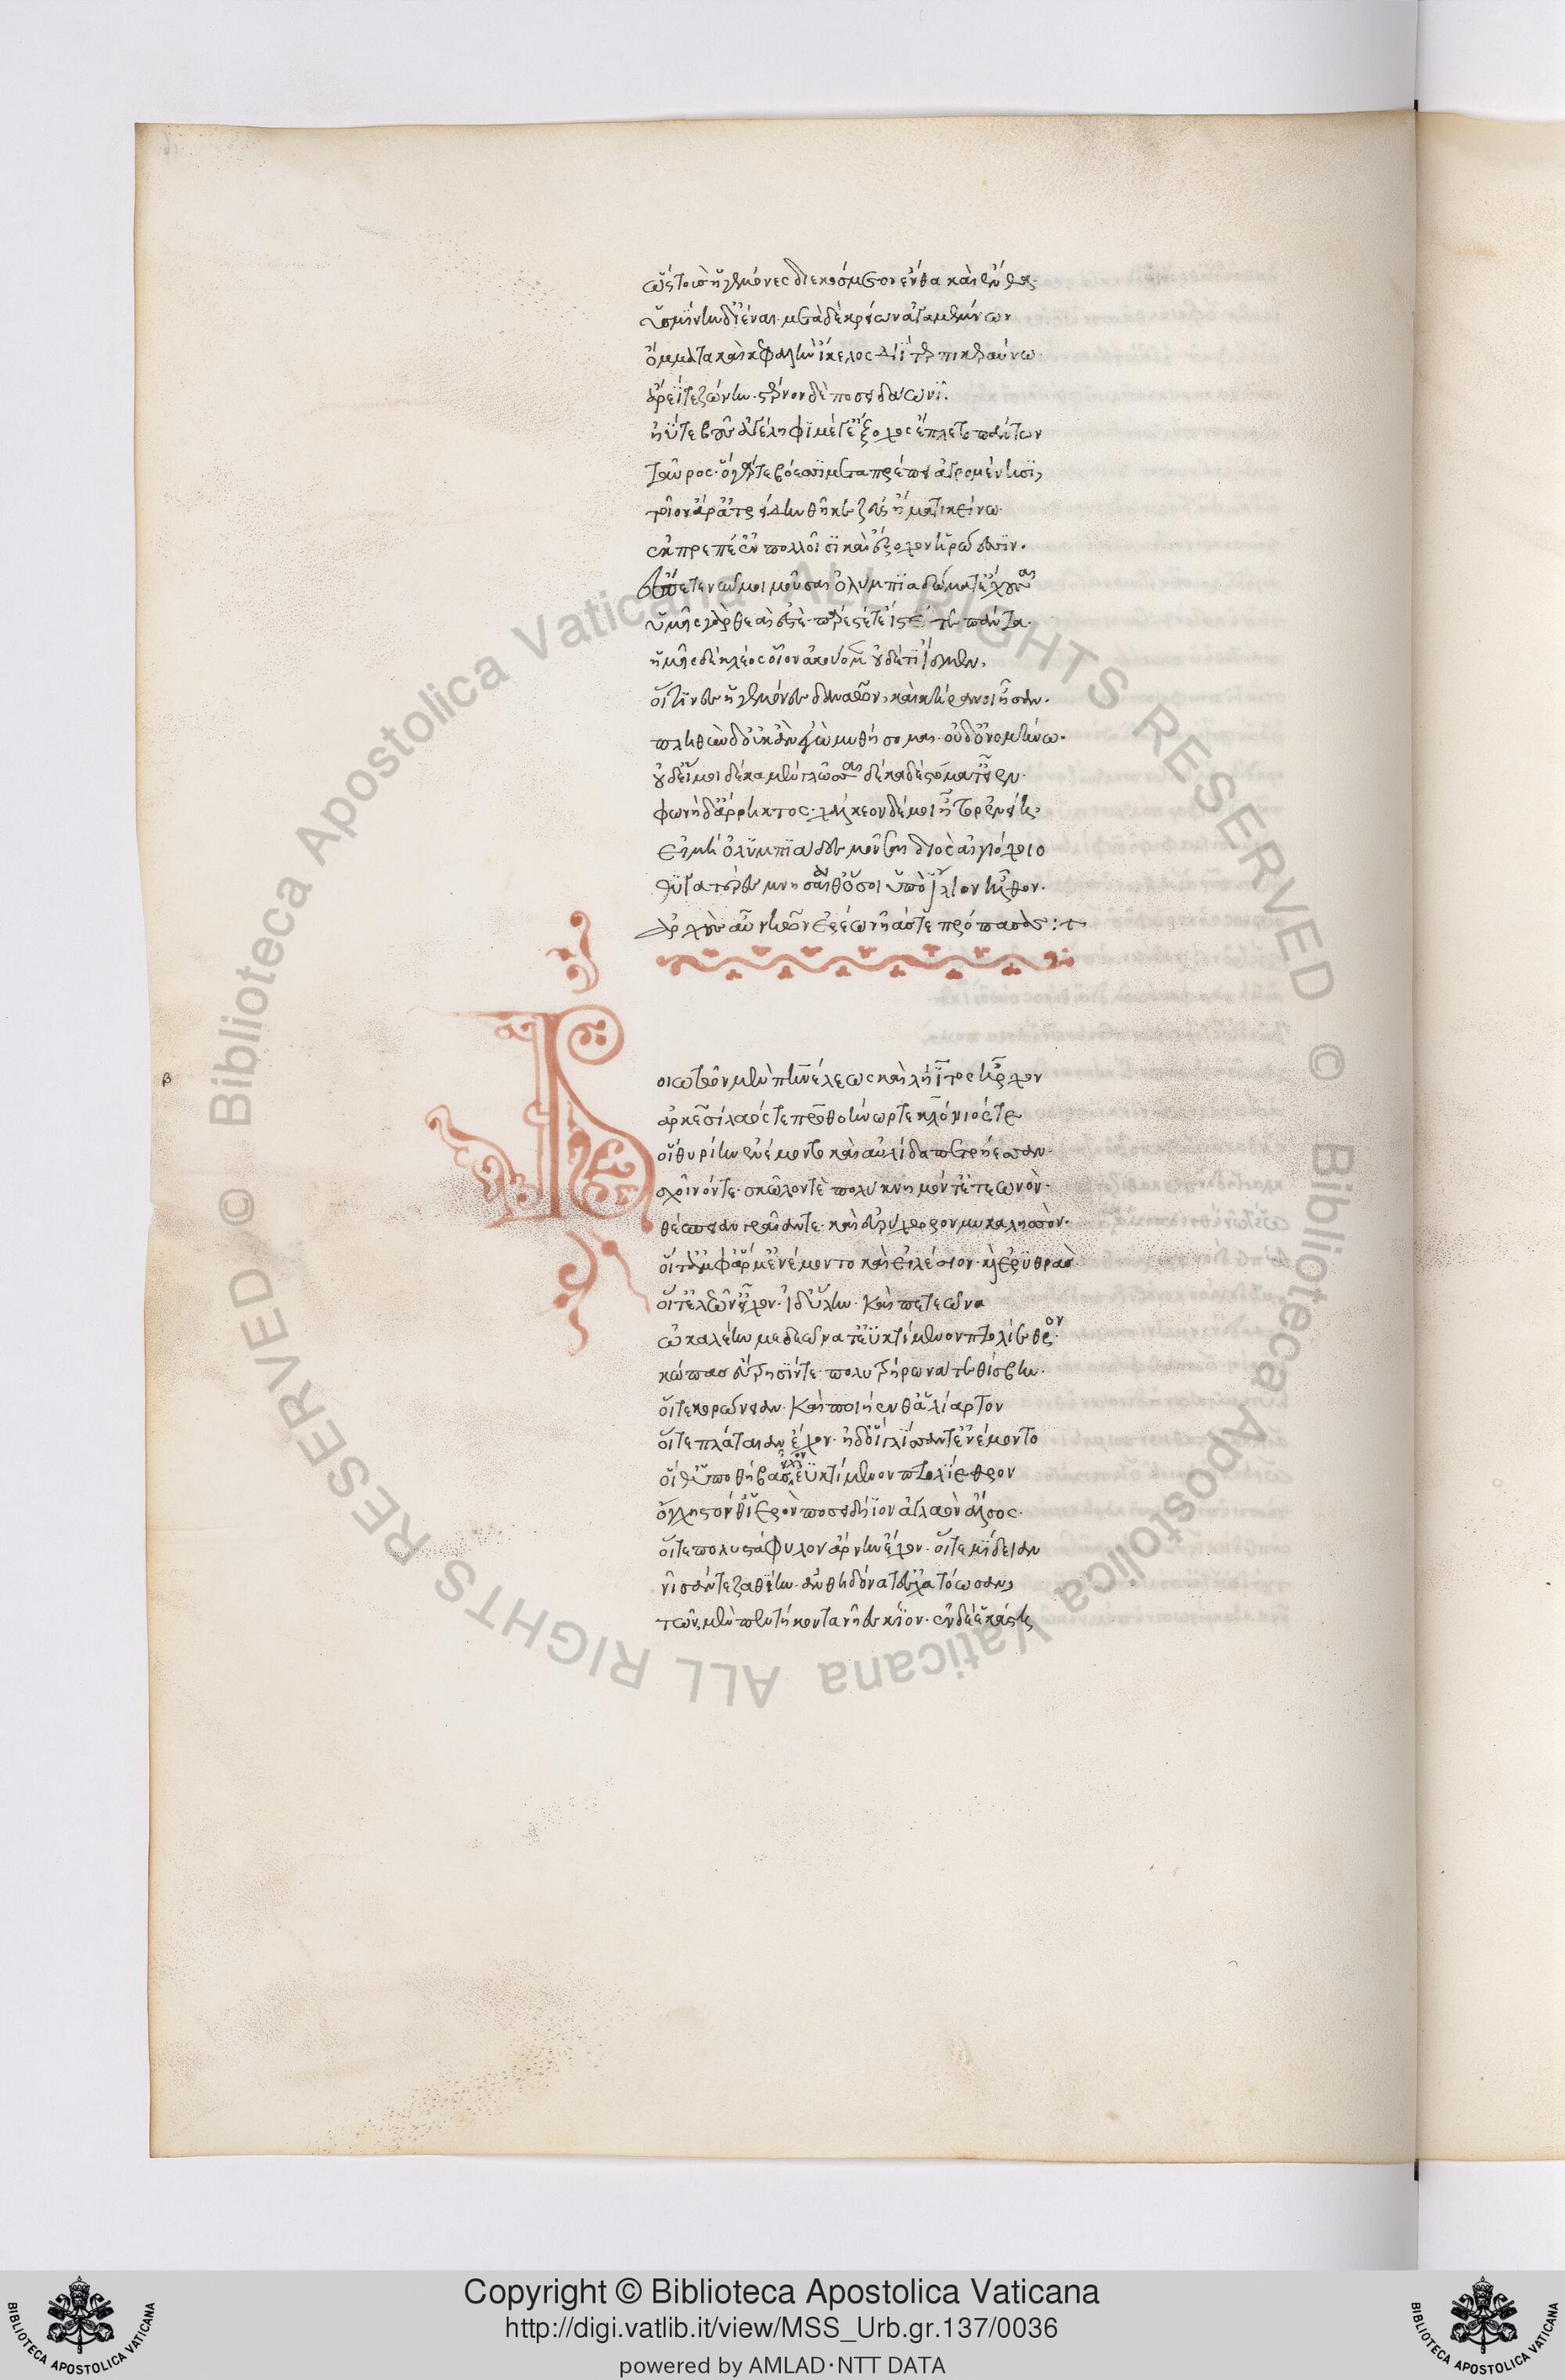 ὣς τοὺς ἡγεμόνες διεκόσμεον ἔνθα καὶ ἔνθα.
ὑσμίνην δ' ἰέναι. μετὰ δὲ κρείων ἀγαμέμνων
ὄμματα καὶ κεφαλὴν ἴκελος διῒ τερπικεραύνω.
ἄρεϊ τε ζώνην. στέρνον δὲ ποσειδάωνι.
ἠΰτε βοῦς ἀγέληφι μέγ' ἔξοχος ἔπλετο πάντων
ταῦρος. ὁ γάρ τε βόεσσι μεταπρέπει ἀγρομένησι,
τοῖον ἄρ' ἀτρείδην θῆκε ζεὺς ἤματι κείνω.
ἐκπρεπέ' ἐν πολλοῖσι καὶ ἔξοχον ἡρώεσσιν.
ἔσπετε νῦν μοι μοῦσαι ὀλύμπια δώματ' ἔχουσαι
ὑμεῖς γὰρ θεαί ἐστε. πάρεστέ τε ἴστέ τε πάντα.
ἡμεῖς δὲ κλέος οἶον ἀκούομεν οὐδέ τι ἴδμεν.
οἵτινες ἡγεμόνες δαναῶν καὶ κοίρανοι ἦσαν.
πληθὺν δ' οὐκ ἂν ἐγὼ μυθήσομαι. οὐδ' ὀνομήνω.
οὐδ' εἴ μοι δέκα μὲν γλῶσσαι δέκα δὲ στόματ' εἶεν.
φωνὴ δ' ἄρρηκτος. χάλκεον δέ μοι ἦτορ ἐνείη.
εἰ μὴ ὀλυμπιάδες μοῦσαι διὸς αἰγιόχοιο
θυγατέρες μνησαίαθ' ὅσοι ὑπὸ ἴλιον ἦλθον.
ἀρχοὺς αὖ νηῶν ἐρέω νῆάς τε προπάσας :
β
Βοιωτῶν μὲν πηνέλεως καὶ λήϊτος ἦρχον
ἀρκεσίλαός τε προθοήνωρ τε κλονίος τε
οἵ θ' ὑρίην ἐνέμοντο καὶ αὐλίδα πετρήεσσαν.
σχοῖνόν τε. σκῶλόν τε πολύκνημόν τ' ἐτεωνόν.
θέσπειαν γραῖάν τε. καὶ εὐρύχορον μυκαλησσόν.
οἵ τ' ἀμφ' ἅρμ' ἐνέμοντο καὶ εἰλέσιον. καὶ ἐρυθράς.
οἵ τ' ἐλεῶν' εἶχον. ἠδ' ὕλην. καὶ πετεῶνα
ὠκαλέην μεδεῶνά τ' ἐϋκτίμενον πτολίεθρον.
κώπας εὔτρησίν τε. πολυτρήρωνά τε θίσβην.
οἵ τε κορώνειαν. καὶ ποιήενθ' ἁλίαρτον
οἵ τε πλάταιαν ἔχον. ἠδ' οἳ γλίσαντ' ἐνέμοντο
οἵ θ' ὑποθήβας εἶχον ἐϋκτίμενον πτολίεθρον
ὀγχηστόν θ' ἱερὸν ποσειδήϊον ἀγλαὸν ἄλσος.
οἵ τε πολυστάφυλον ἄρνην ἔχον. οἵ τε μίδειαν
νῖσάν τε ζαθέην. ἀνθηδόνα τ' ἐσχατόωσαν,
τῶν μὲν πεντήκοντα νῆες κίον. ἐν δὲ ἑκάστη
Copyright © Biblioteca Apostolica Vaticana
http://digi.vatlib.it/view/MSS_Urb.gr.137/0036
powered by AMLAD·NTT DATA
BIBLIOTECA APOSTOLICA VATICANA
BIBLIOTECA APOSTOLICA VATICANA
© Biblioteca Apostolica Vaticana ALL RIGHTS RESERVED
© Biblioteca Apostolica Vaticana ALL RIGHTS RESERVED